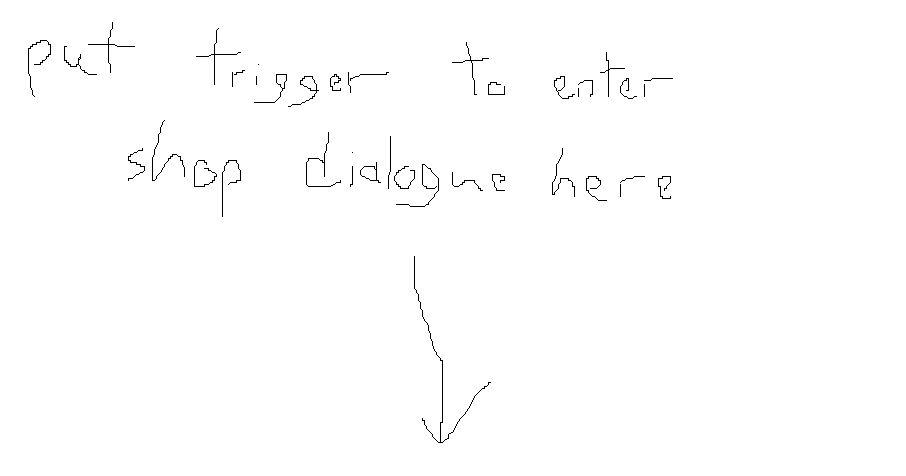 put trigger to enter
shop dialogue here